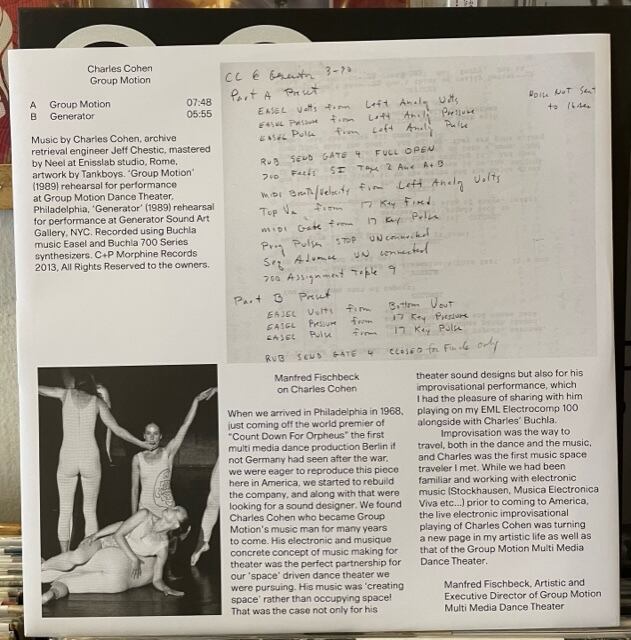 Charles Cohen
Group Motion
A Group Motion 07:48
B Generator 05:55
Music by Charles Cohen, archive
retrieval engineer Jeff Chestic, mastered
by Neel at Enisslab studio, Rome,
artwork by Tankboys. ‘Group Motion’
(1989) rehearsal for performance
at Group Motion Dance Theater,
Philadelphia, ‘Generator’ (1989) rehearsal
for performance at Generator Sound Art
Gallery, NYC. Recorded using Buchla
music Easel and Buchla 700 Series
synthesizers. C+P Morphine Records
2013, All Rights Reserved to the owners.
CC @ Generator 3-90
Part A Preset
EASEL Volts from Left Analg Volts
EASEL Pressure from Left Analg Pressure
EASEL Pulse from Left Analg Pulse
NOISE NOT Sent
to
RVB SEND GATE 4 FULL OPEN
700 Tape 2 A+B
MIDI Velocity from Left Analg Volts
Top from 17 Key Fixed
MIDI Gate from 17 Key Pulse
Prog Pulser STOP UNconnected
Seq Advance UN connected
700 Assignment Table 9
Part B Preset
EASEL Volts from Bottom Vout
EASEL Pressure from 17 Key Pressure
EASEL Pulse from 17 Key Pulse
RVB SEND GATE 4 CLOSED for Finale only
Manfred Fischbeck
on Charles Cohen
When we arrived in Philadelphia in 1968,
just coming off the world premier of
"Count Down For Orpheus" the first
multi media dance production Berlin if
not Germany had seen after the war,
we were eager to reproduce this piece
here in America, we started to rebuild
the company, and along with that were
looking for a sound designer. We found
Charles Cohen who became Group
Motion's music man for many years
to come. His electronic and musique
concrete concept of music making for
theater was the perfect partnership for
our 'space' driven dance theater we
were pursuing. His music was 'creating
space' rather than occupying space!
That was the case not only for his
theater sound designs but also for his
improvisational performance, which
I had the pleasure of sharing with him
playing on my EML Electrocomp 100
alongside with Charles' Buchla.
Improvisation was the way to
travel, both in the dance and the music,
and Charles was the first music space
traveler I met. While we had been
familiar and working with electronic
music (Stockhausen, Musica Electronica
Viva etc...) prior to coming to America,
the live electronic improvisational
playing of Charles Cohen was turning
a new page in my artistic life as well as
that of the Group Motion Multi Media
Dance Theater.
Manfred Fischbeck, Artistic and
Executive Director of Group Motion
Multi Media Dance Theater